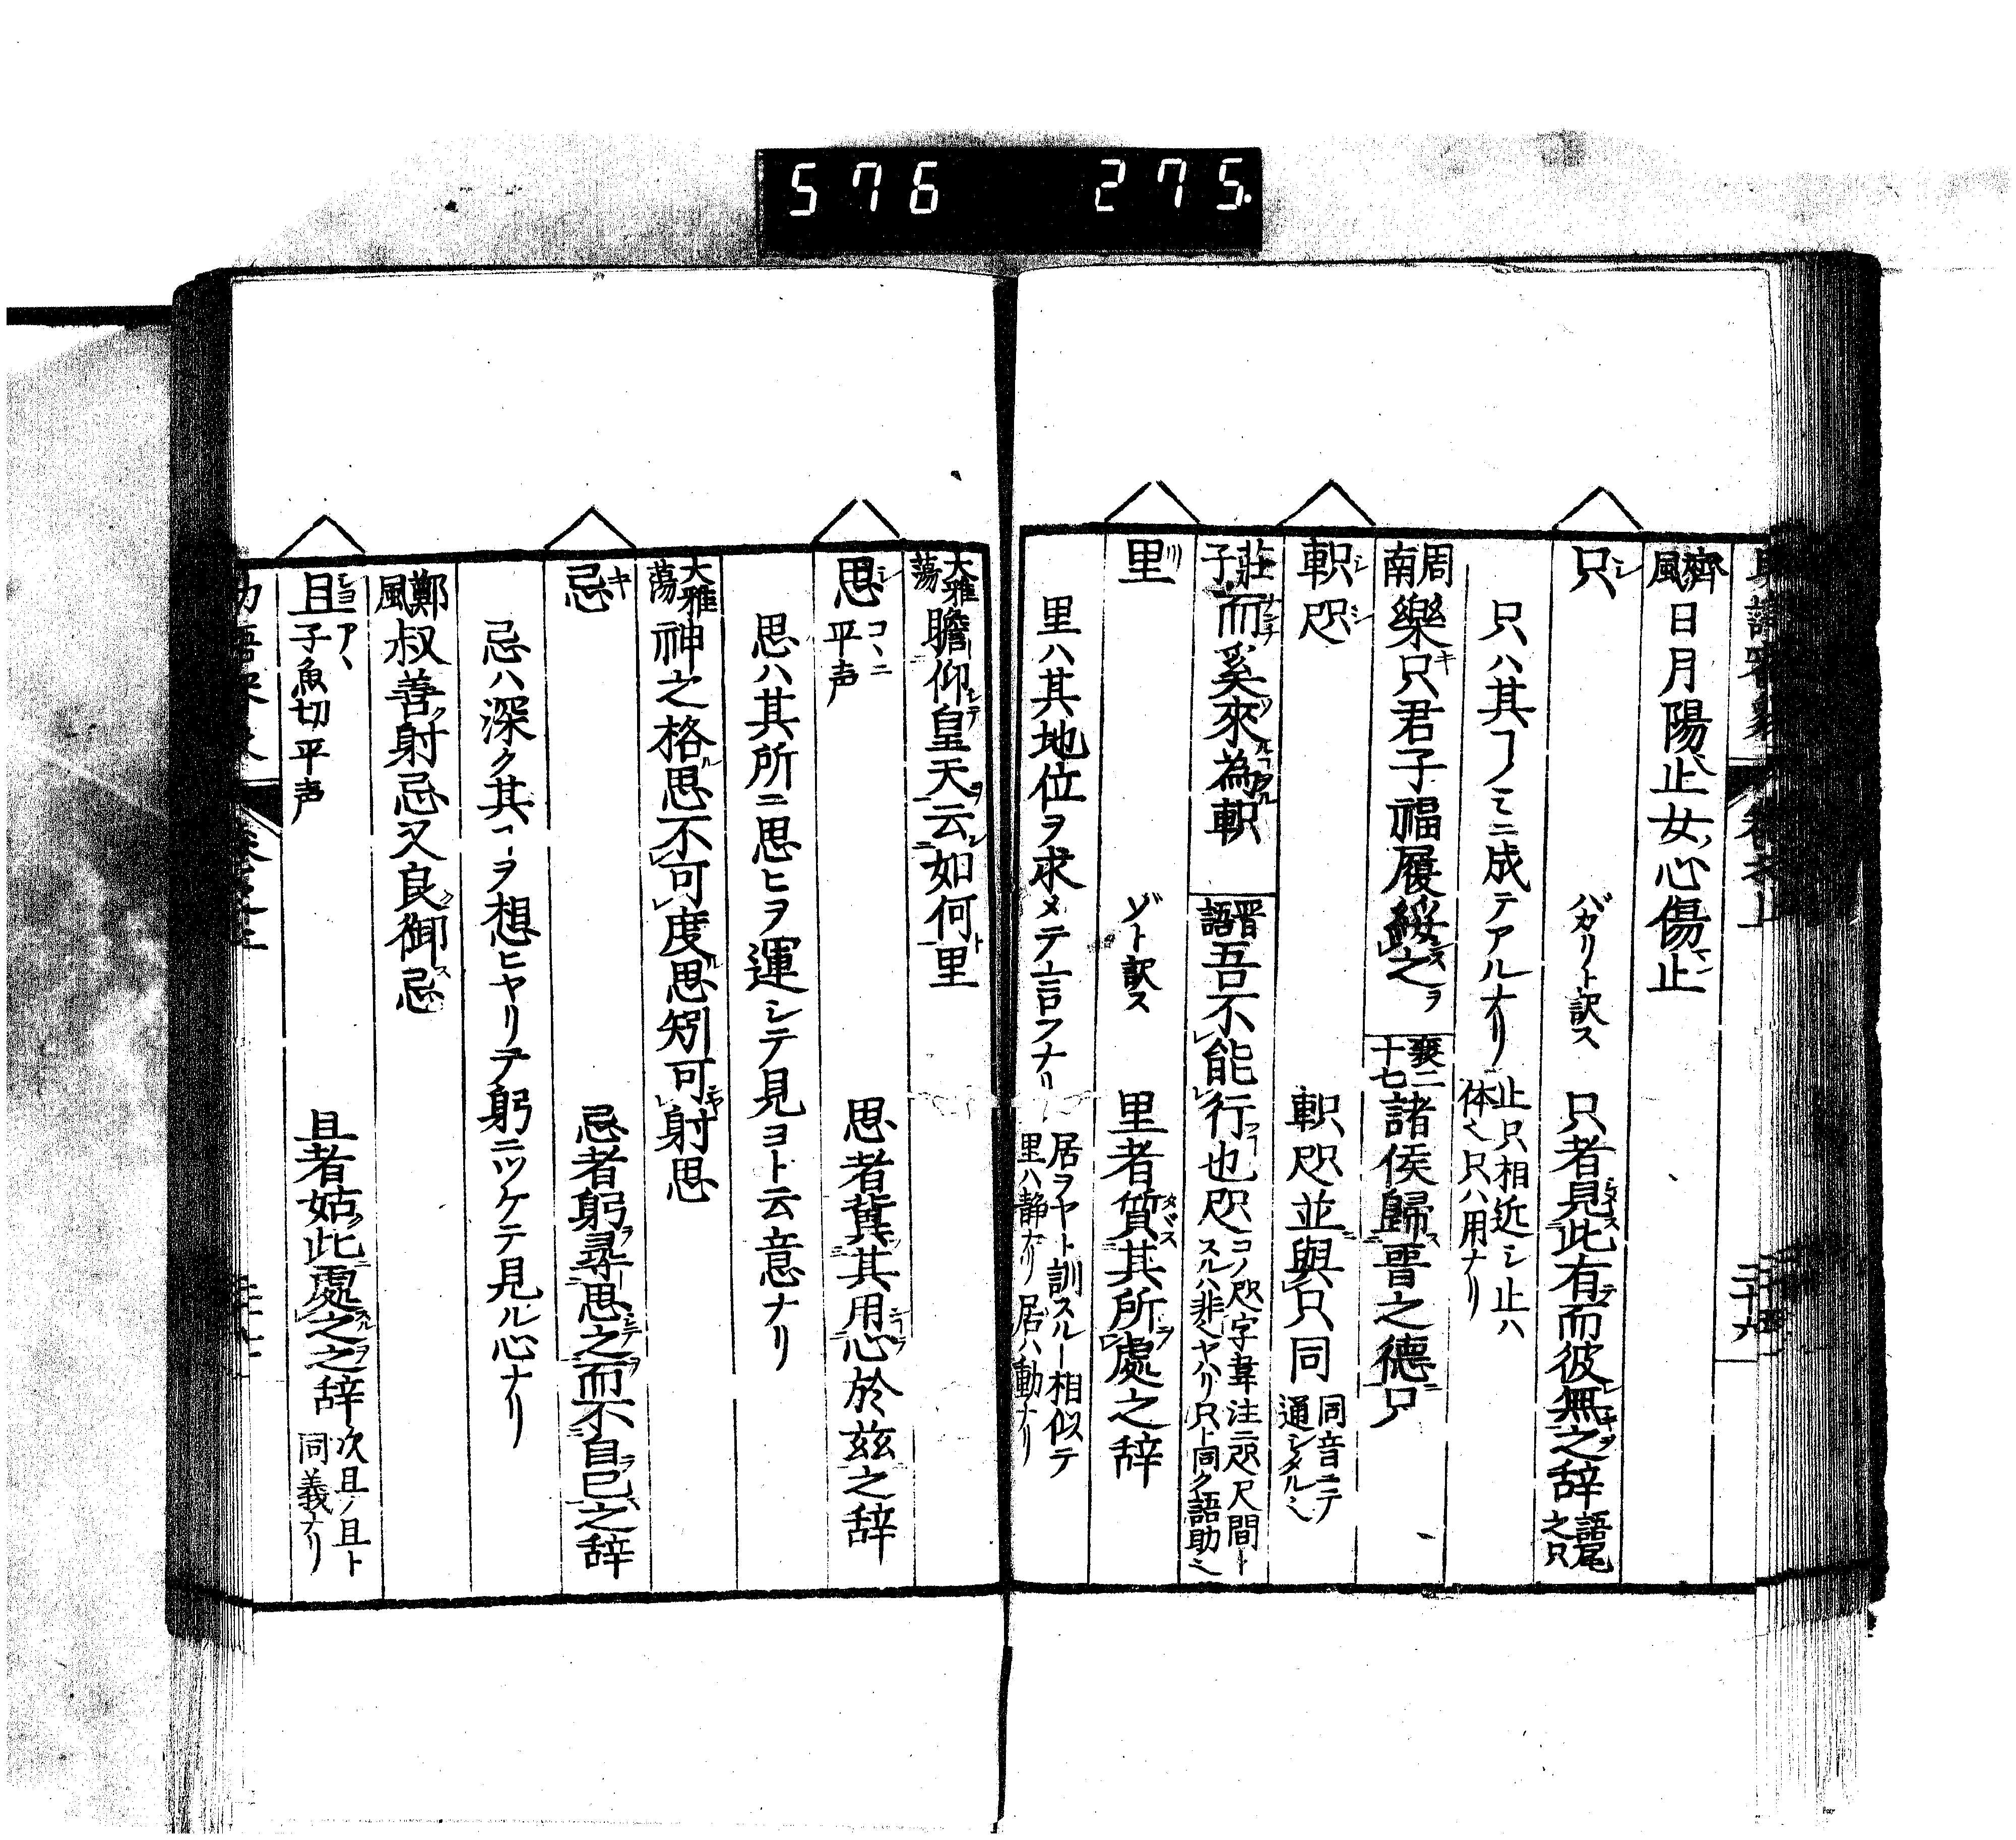 576 275.
齊風 日月陽止女心傷止
只シ バカリト訳ス 只者見此有而彼無之辞 語尾之只
只ハ其ヿノミニ成テアルナリ 止只相近シ止ハ体ニ只ハ用ナリ
周南 樂只君子福履綏之 襄二十七 諸侯歸晋之德只
軹シ咫シ 軹咫並與只同 同音ニテ通シタル也
莊子 而奚來為軹 晋語 吾不能行也咫 コノ咫字韋注ニ咫尺間トスルハ非也ヤハリ只ト同ク語助也
里リ ゾト訳ス 里者質其所處之辞
里ハ其地位ヲ求メテ言フナリ 居ヲヤト訓スルヿ相似テ里ハ静ナリ居ハ動ナリ
大雅蕩 瞻仰皇天云如何里
思シ コヽニ 平声 思者冀其用心於玆之辞
思ハ其所ニ思ヒヲ運シテ見ヨト云意ナリ
大雅蕩 神之格思不可度思矧可射思
忌キ 忌者躬尋思之而不自已之辞
忌ハ深ク其ヿヲ想ヒヤリテ躬ニツケテ見ル心ナリ
鄭風 叔善射忌又良御忌
且ショ アヽ 子魚切平声 且者姑此處之之辞 次且ノ且ト同義ナリ